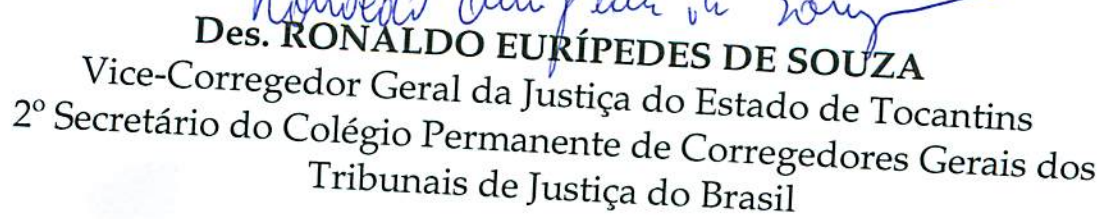 Des. RONALDO EURÍPEDES DE SOUZA
Vice-Corregedor Geral da Justiça do Estado de Tocantins
2º Secretário do Colégio Permanente de Corregedores Gerais dos
Tribunais de Justiça do Brasil